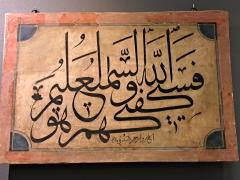 فسيكفيكهم الله وهو السميع العليم